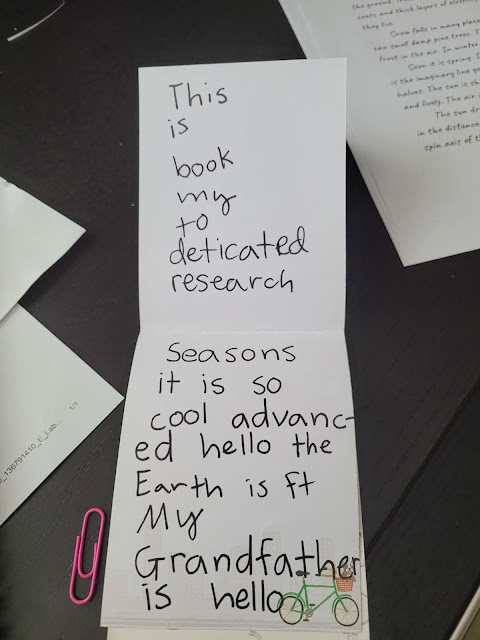 This
is
book
my
to
deticated
research
Seasons
it is so
cool advanc-
ed hello the
Earth is ft
My
Grandfather
is hello
the ground.
coats and thick layers of
they live.
Snow falls in many place
can smell damp pine trees. T
Frost in the air. In winter
Soon it is spring.
is the imaginary line
halves. The sun is
and lively. The air
The sun
in the distance
spin axis of
136791410_E_Lab... 1/1